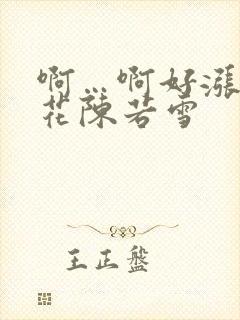 啊…啊好涨
花陈若雪
王正盤